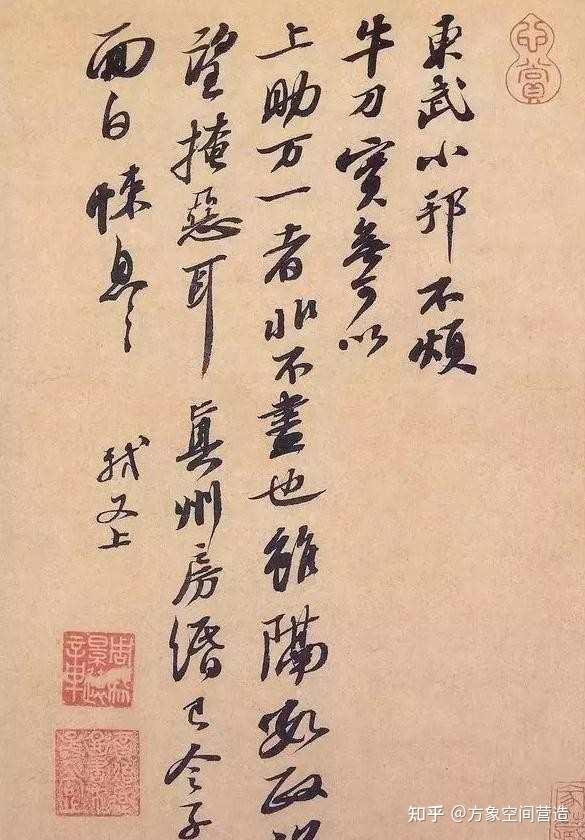 東武小邦不煩
牛刀實無可以
上助万一者非不盡也雖隔數政
望掩惡耳真州房緡已令子
面白悚息々
軾又上
知乎 @方象空间营造